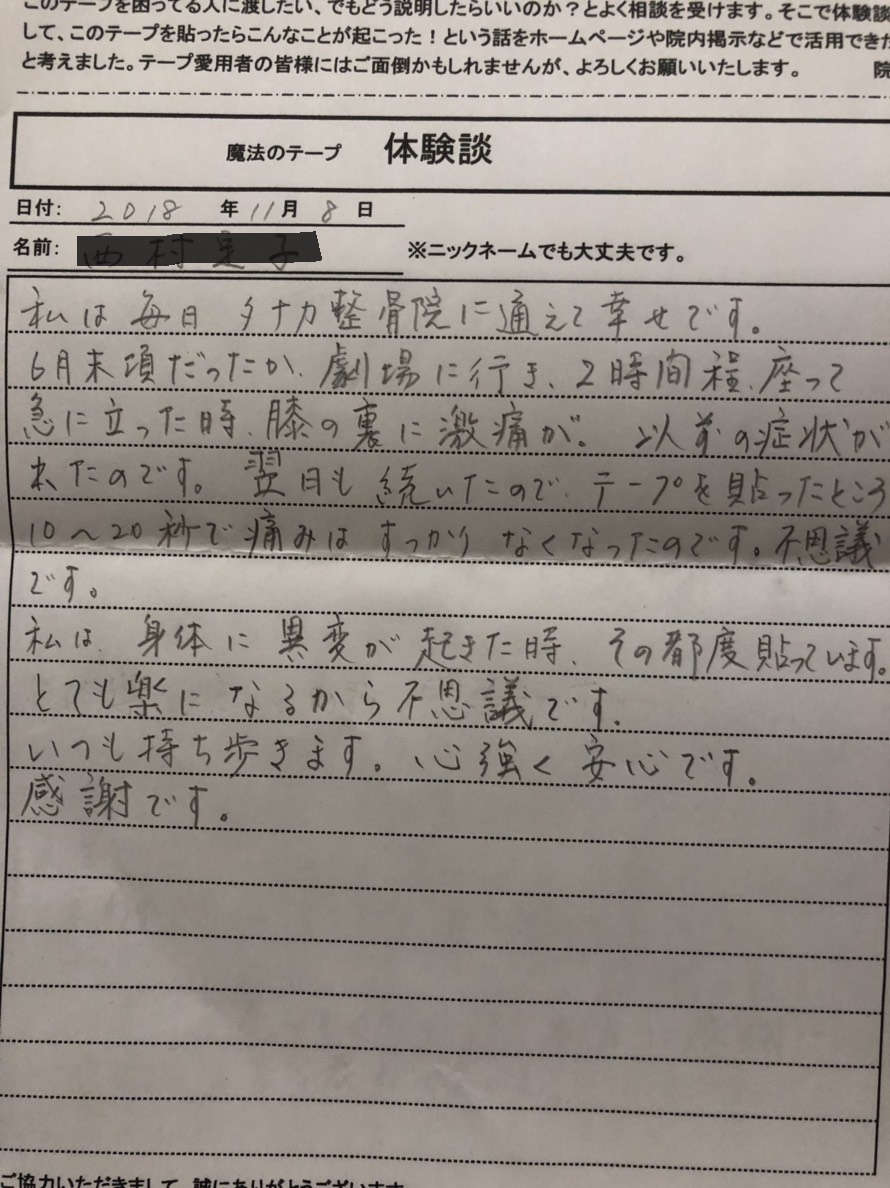 このテープを困ってる人に渡したい、でもどう説明したらいいのか？とよく相談を受けます。そこで体験談
して、このテープを貼ったらこんなことが起こった！という話をホームページや院内掲示などで活用できた
と考えました。テープ愛用者の皆様にはご面倒かもしれませんが、よろしくお願いいたします。 院
魔法のテープ 体験談
日付: 2018 年 11 月 8 日
名前: ※ニックネームでも大丈夫です。
私は毎日 タナカ整骨院に通えて幸せです。
6月末頃だったか、劇場に行き、2時間程、座って
急に立った時、膝の裏に激痛が。 以前の症状が
れたのです。翌日も続いたので、テープを貼ったところ
10〜20秒で痛みはすっかりなくなったのです。不思議
です。
私は、身体に異変が起きた時、その都度貼っています。
とても楽になるから不思議です。
いつも持ち歩きます。心強く安心です。
感謝です。
ご協力いただきまして、誠にありがとうございます